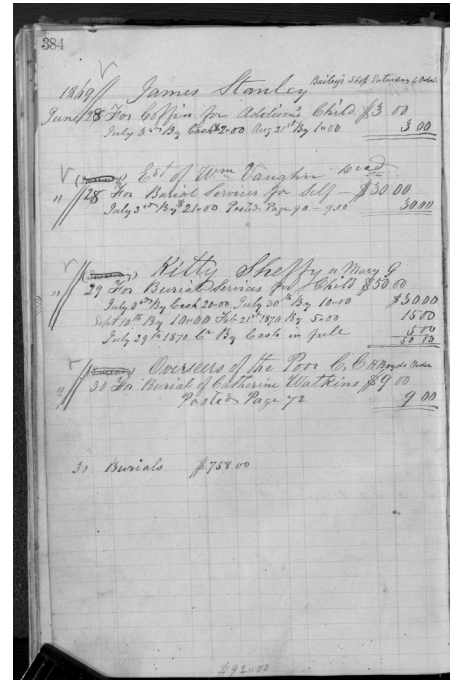 384
1869 James Stanley Bailey's Shop Saturday
June 28 For Coffin for Addison's Child $3 00
July 3rd By Cash 2=00 Aug 21st By 1=00 3 00
Est of Wm Vaughn
" 28 For Burial Services for Self — $30 00
July 3rd By 21=00 Posted Page 90 — 9.00 30 00
Kitty Sheffy or Mary G
" 29 For Burial Services for Child $50 00
July 3rd By Cash 20=00 July 30th By 10=00 $30 00
Sept 10th By 10=00 Feb 21st 1870 By 5=00 15 00
July 29th 1870 By Cash in full 5 00
50 00
Overseers of the Poor C. C. H Boyds Order
" 30 For Burial of Catherine Watkins $9 00
Posted Page 72 9 00
30 Burials $758 00
$92=00